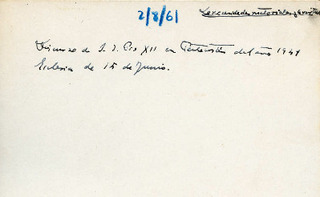 2/8/61
Discurso de S. S. Pío XII en Pentecostés del año 1941
Ecclesia de 15 de Junio.